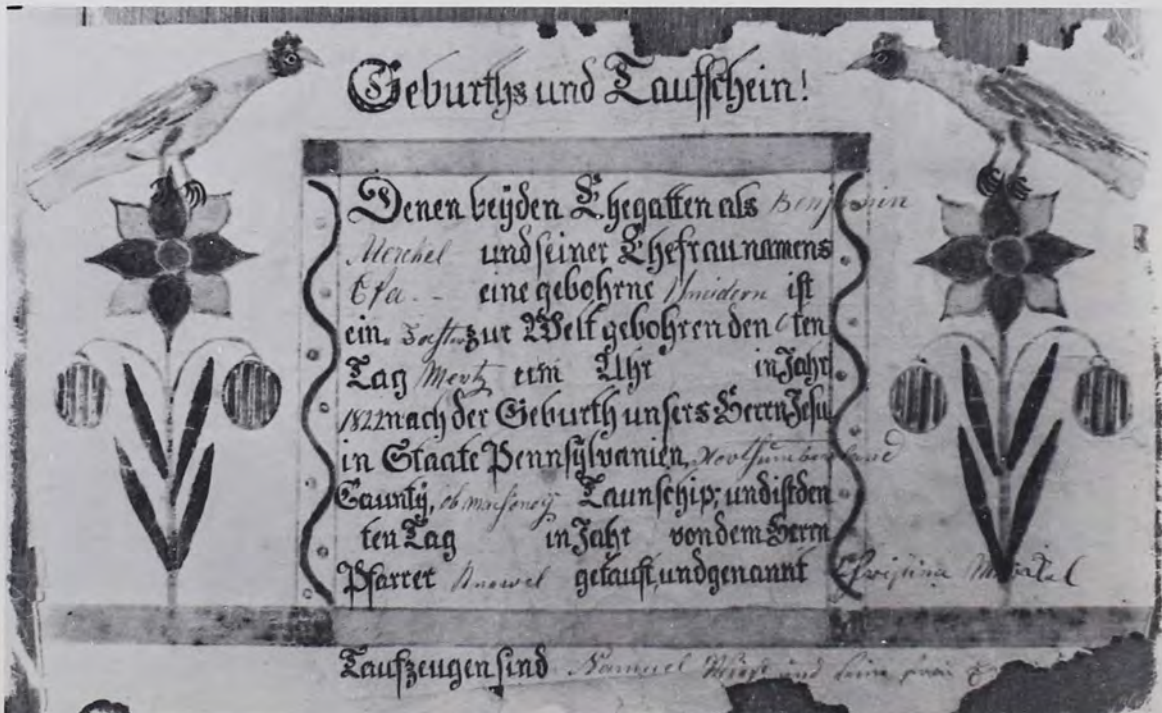 Geburths und Taufschein!
Denen beyden Ehegatten als Benjamin
Merckel und seiner Ehefrau namens
Efa eine gebohrne ist
ein Tochter zur Welt gebohren den 6 ten
Tag Mertz um Uhr in Jahr
1822 nach der Geburth unsers Herrn Jesu
in Staate Pennsylvanien, Northumberland
Caunty, ob mahonoy Taunschip; und ist den
ten Tag in Jahr von dem Herrn
Pfarrer getauft, und genannt Christina Merckel
Taufzeugen sind Samuel und seine frau